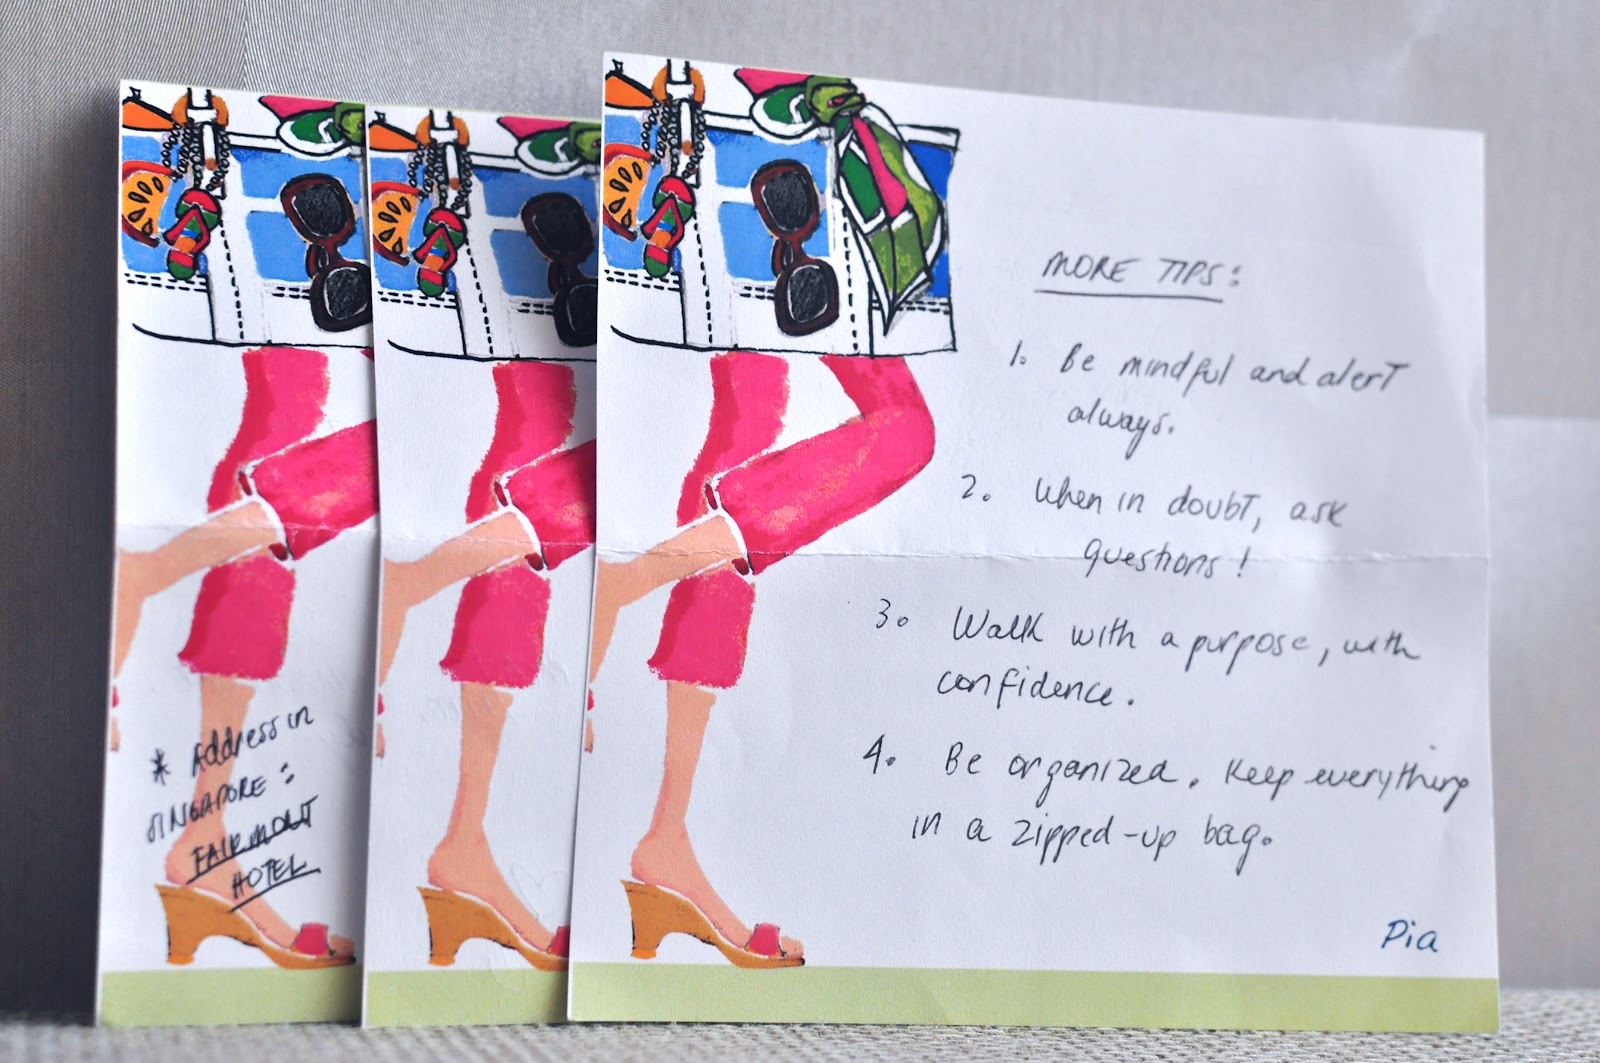 * Address in
SINGAPORE:
FAIRMONT
HOTEL
MORE TIPS:
1. Be mindful and alert
always.
2. When in doubt, ask
questions!
3. Walk with a purpose, with
confidence.
4. Be organized. Keep everything
in a zipped-up bag.
Pia